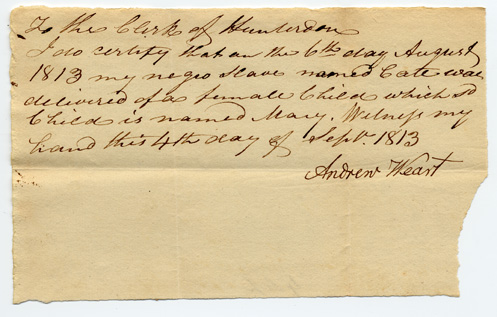 To the Clerk of Hunterdon
I do certify that on the 6th day August
1813 my negro slave named Cate was
delivered of a female Child which sd
Child is named Mary. Witness my
hand this 4th day of Sept. 1813
Andrew Weart